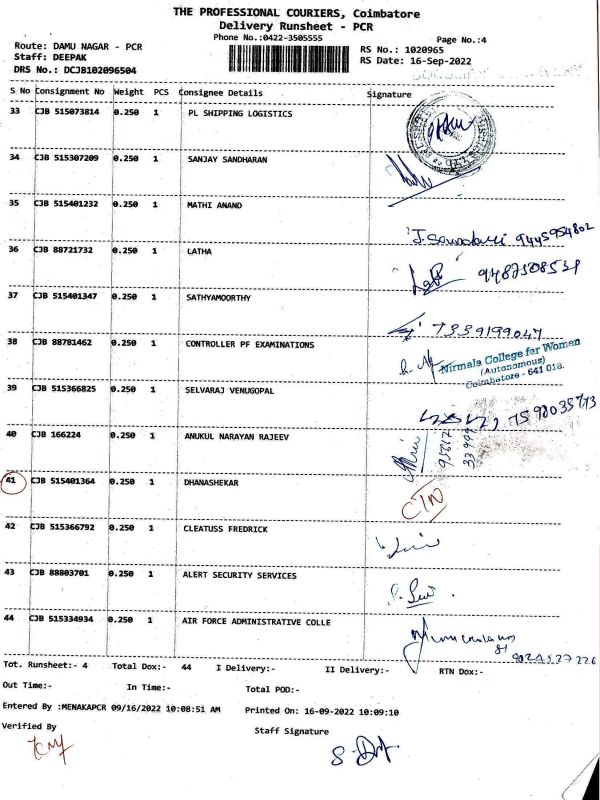 THE PROFESSIONAL COURIERS, Coimbatore
Delivery Runsheet - PCR
Phone No.:0422-3505555
Page No.:4
Route: DAMU NAGAR - PCR
RS No.: 1020965
Staff: DEEPAK
RS Date: 16-Sep-2022
DRS No.: DCJB102096504
S No Consignment No Weight PCS Consignee Details Signature
33 CJB 515073814 0.250 1 PL SHIPPING LOGISTICS
34 CJB 515307209 0.250 1 SANJAY SANDHARAN
35 CJB 515401232 0.250 1 MATHI ANAND
9445954802
36 CJB 88721732 0.250 1 LATHA
37 CJB 515401347 0.250 1 SATHYAMOORTHY
7339199047
38 CJB 88781462 0.250 1 CONTROLLER PF EXAMINATIONS
Nirmala College for Women
(Autonomous)
Coimbatore - 641 018.
39 CJB 515366825 0.250 1 SELVARAJ VENUGOPAL
40 CJB 166224 0.250 1 ANUKUL NARAYAN RAJEEV
41 CJB 515401364 0.250 1 DHANASHEKAR
42 CJB 515366792 0.250 1 CLEATUSS FREDRICK
43 CJB 88803701 0.250 1 ALERT SECURITY SERVICES
44 CJB 515334934 0.250 1 AIR FORCE ADMINISTRATIVE COLLE
Tot. Runsheet:- 4 Total Dox:- 44 I Delivery:- II Delivery:- RTN Dox:-
Out Time:- In Time:- Total POD:-
Entered By :MENAKAPCR 09/16/2022 10:08:51 AM Printed On: 16-09-2022 10:09:10
Verified By Staff Signature